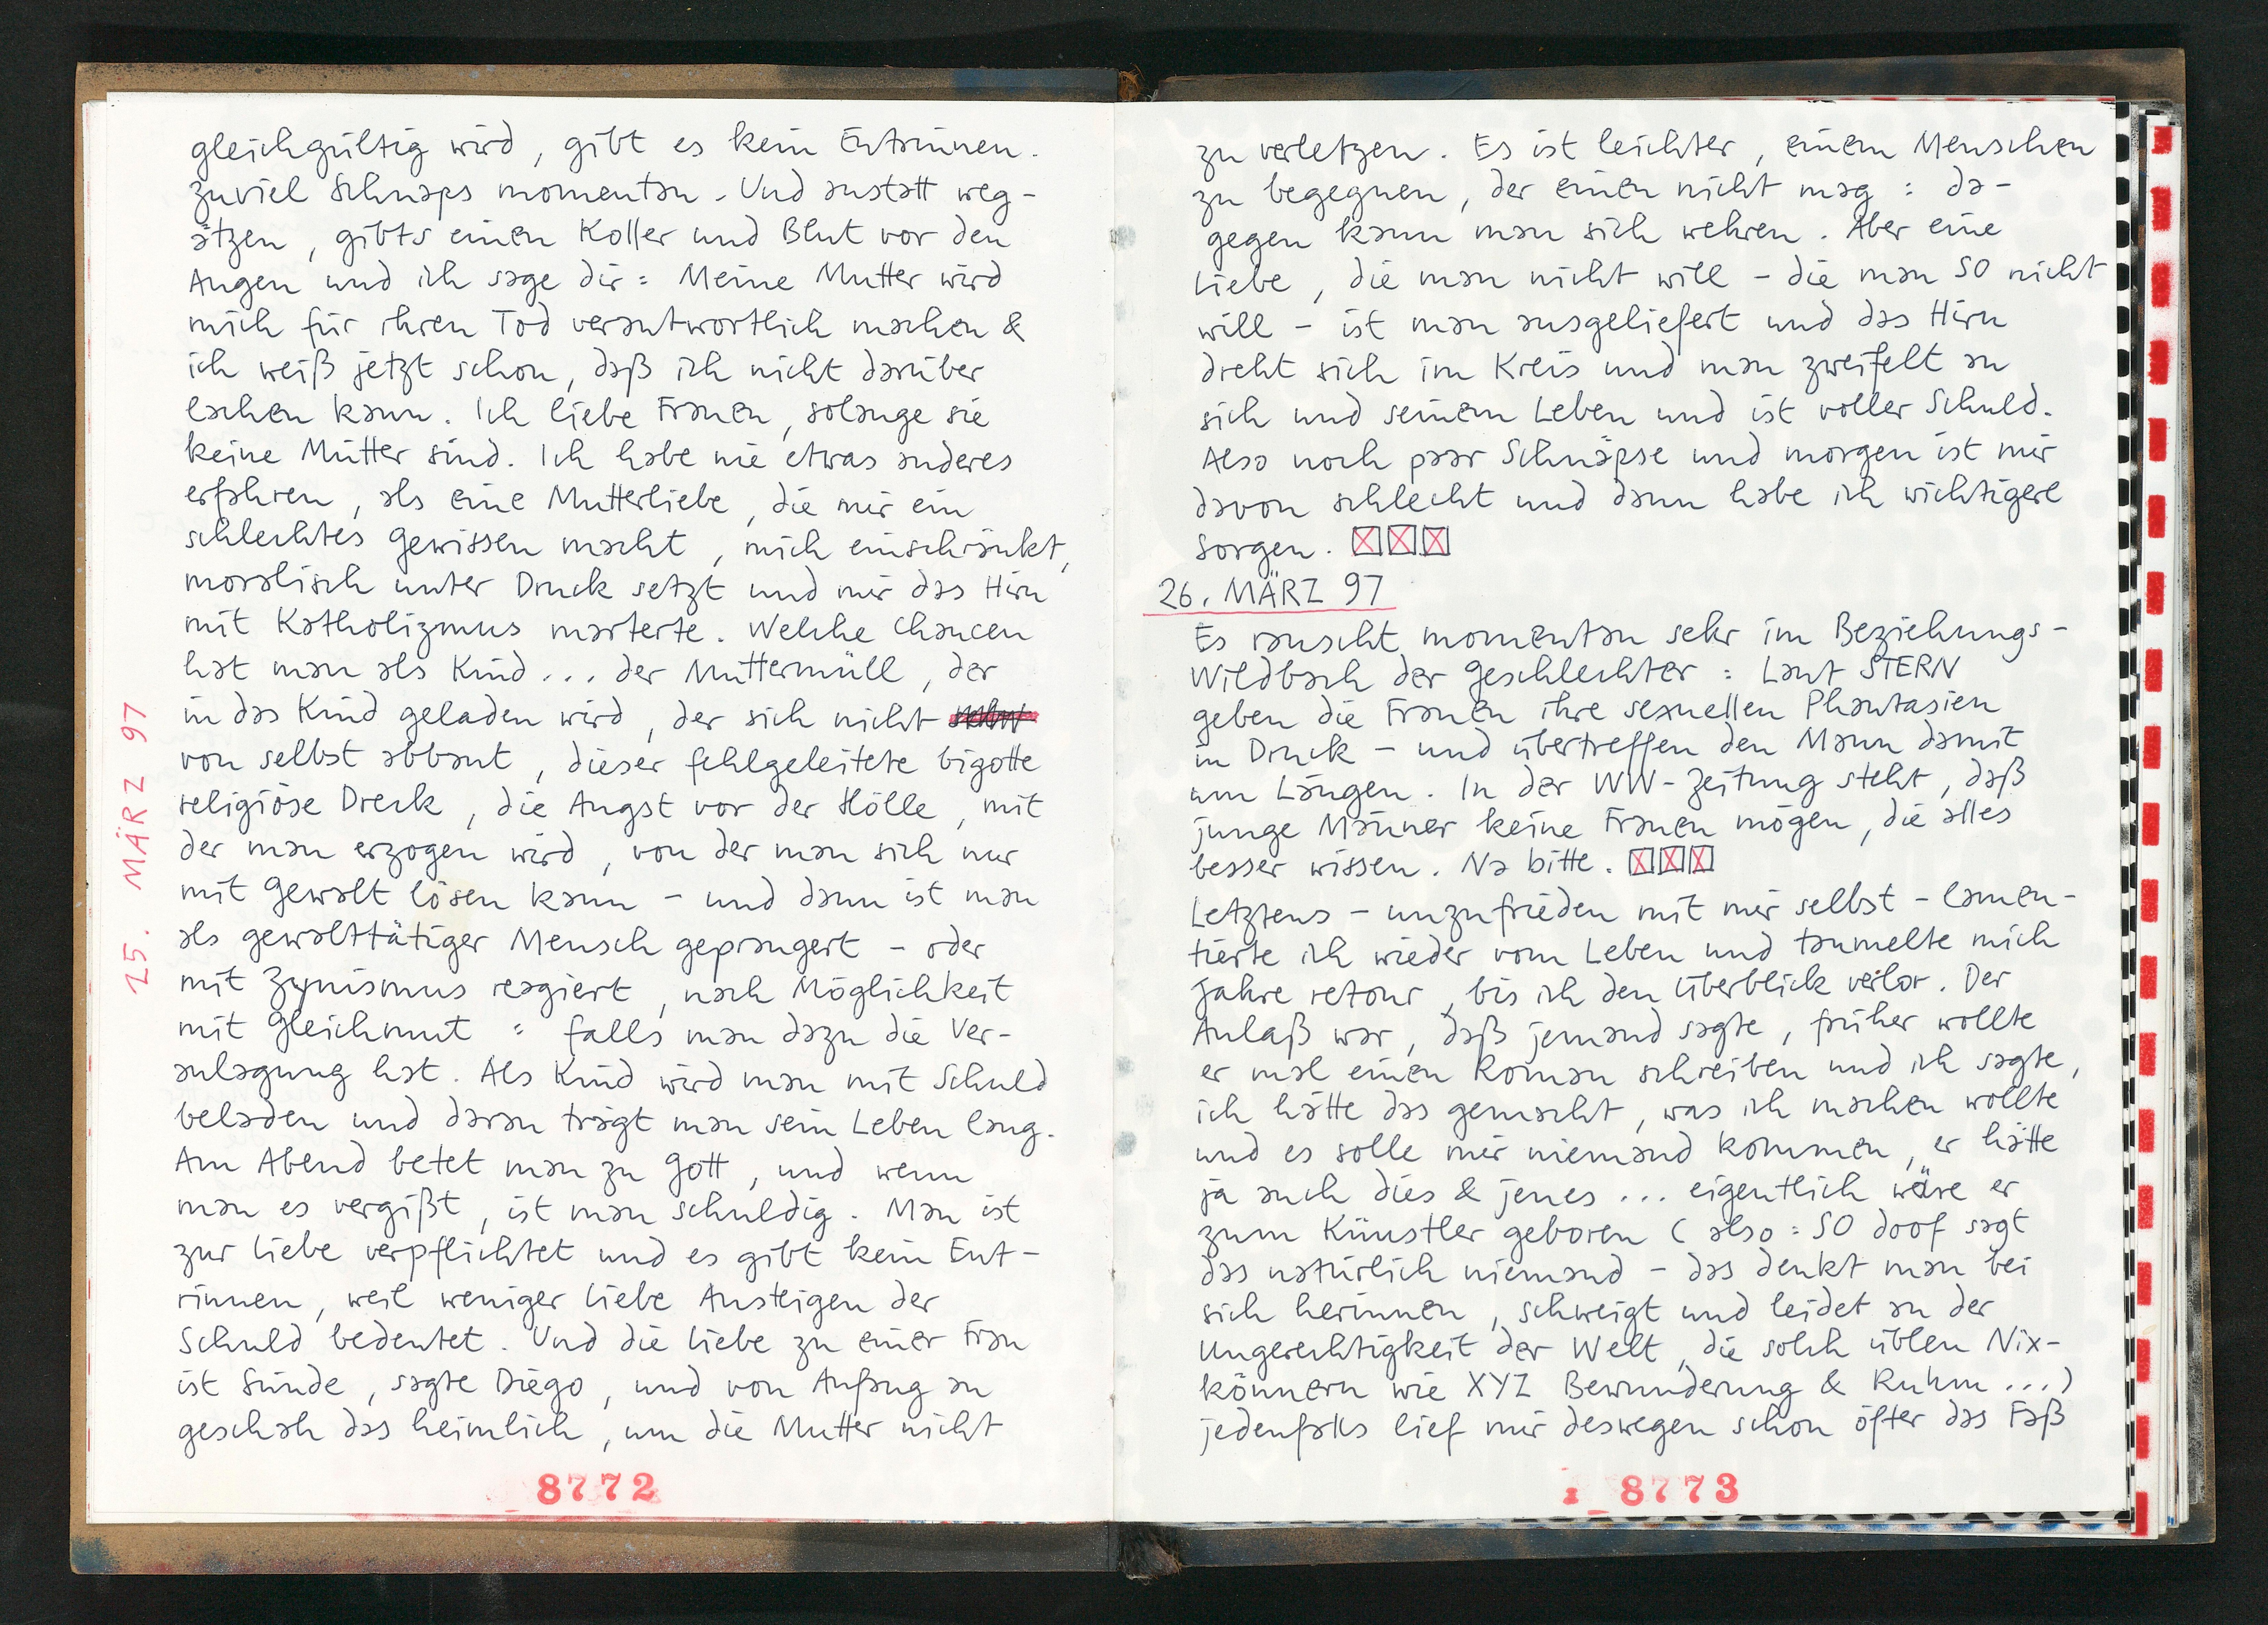 25. MÄRZ 97
gleichgültig wird, gibt es kein Entrinnen.
zuviel Schnaps momentan. Und anstatt weg-
ätzen, gibts einen Koller und Blut vor den
Augen und ich sage dir: Meine Mutter wird
mich für ihren Tod verantwortlich machen &
ich weiß jetzt schon, daß ich nicht darüber
lachen kann. Ich liebe Frauen, solange sie
keine Mütter sind. Ich habe nie etwas anderes
erfahren, als eine Mutterliebe, die mir ein
schlechtes Gewissen macht, mich einschränkt,
moralisch unter Druck setzt und mir das Hirn
mit Katholizmus marterte. Welche Chancen
hat man als Kind... der Muttermüll, der
in das Kind geladen wird, der sich nicht
von selbst abbaut, dieser fehlgeleitete bigotte
religiöse Dreck, die Angst vor der Hölle, mit
der man erzogen wird, von der man sich nur
mit Gewalt lösen kann - und dann ist man
als gewalttätiger Mensch geprangert - oder
mit Zynismus reagiert, nach Möglichkeit
mit Gleichmut : falls man dazu die Ver-
anlagung hat. Als Kind wird man mit Schuld
beladen und daran trägt man sein Leben lang.
Am Abend betet man zu Gott, und wenn
man es vergißt, ist man schuldig. Man ist
zur Liebe verpflichtet und es gibt kein Ent-
rinnen, weil weniger Liebe Ansteigen der
Schuld bedeutet. Und die Liebe zu einer Frau
ist Sünde, sagte Diego, und von Anfang an
geschah das heimlich, um die Mutter nicht
8772
zu verletzen. Es ist leichter, einem Menschen
zu begegnen, der einen nicht mag : da-
gegen kann man sich wehren. Aber eine
Liebe, die man nicht will - die man SO nicht
will - ist man ausgeliefert und das Hirn
dreht sich im Kreis und man zweifelt an
sich und seinem Leben und ist voller Schuld.
Also noch paar Schnäpse und morgen ist mir
davon schlecht und dann habe ich wichtigere
Sorgen.
26. MÄRZ 97
Es rauscht momentan sehr im Beziehungs-
Wildbach der Geschlechter : Laut STERN
geben die Frauen ihre sexuellen Phantasien
in Druck - und übertreffen den Mann damit
um Längen. In der WW-Zeitung steht, daß
junge Männer keine Frauen mögen, die alles
besser wissen. Na bitte.
Letztens - unzufrieden mit mir selbst - lamen-
tierte ich wieder vom Leben und taumelte mich
Jahre retour, bis ich den Überblick verlor. Der
Anlaß war, daß jemand sagte, früher wollte
er mal einen Roman schreiben und ich sagte,
ich hätte das gemacht, was ich machen wollte
und es solle mir niemand kommen, er hätte
ja auch dies & jenes ... eigentlich wäre er
zum Künstler geboren (also : SO doof sagt
das natürlich niemand - das denkt man bei
sich herinnen, schweigt und leidet an der
Ungerechtigkeit der Welt, die solch üblen Nix-
könnern wie XYZ Bewunderung & Ruhm ...)
jedenfalls lief mir deswegen schon öfter das Faß
8773